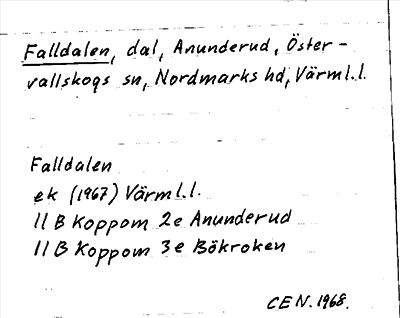 Falldalen, dal, Anunderud, Öster-
vallskogs sn, Nordmarks hd, Värml.l.
Falldalen
ek (1967) Värml.l.
11 B Koppom 2e Anunderud
11 B Koppom 3e Bökroken
CEN. 1968.